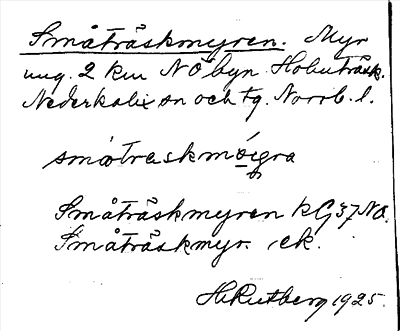 Småträskmyren. Myr
ung. 2 km NO byn Hobuträsk.
Nederkalix sn och tg. Norrb. l.
småtraskmöigra
Småträskmyren kG37NO.
Småträskmyr. ek.
H Rutberg 1925.